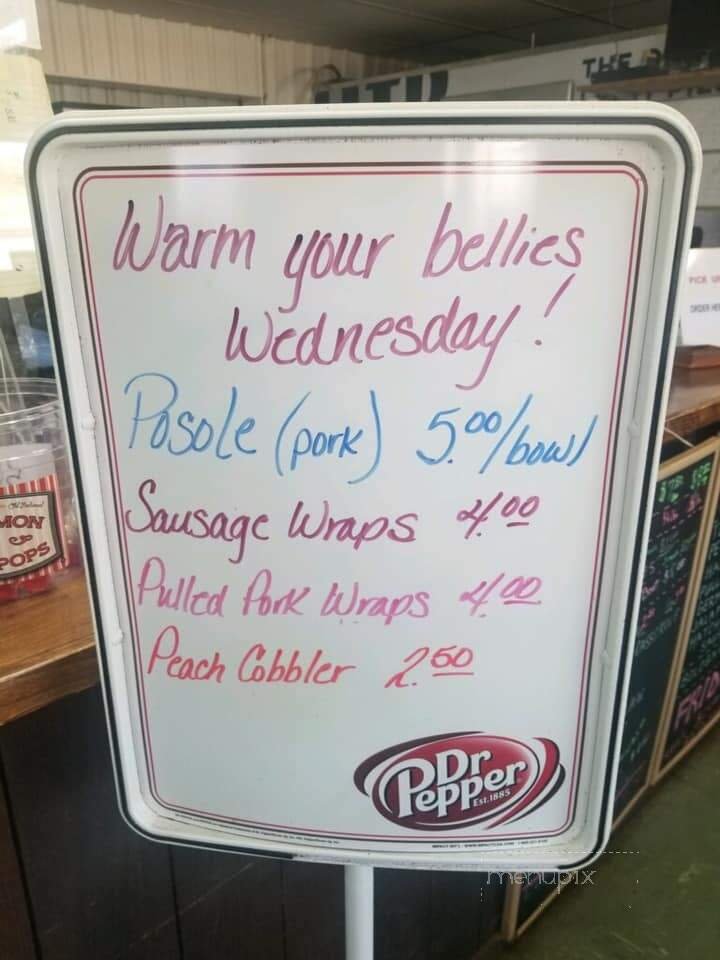 THE
Warm your bellies
Wednesday!
Posole (pork) 5.00/bowl
Sausage Wraps 4.00
Pulled Pork Wraps 4.00
Peach Cobbler 2.50
MON
POPS
Dr
Pepper
EST. 1885
menupix